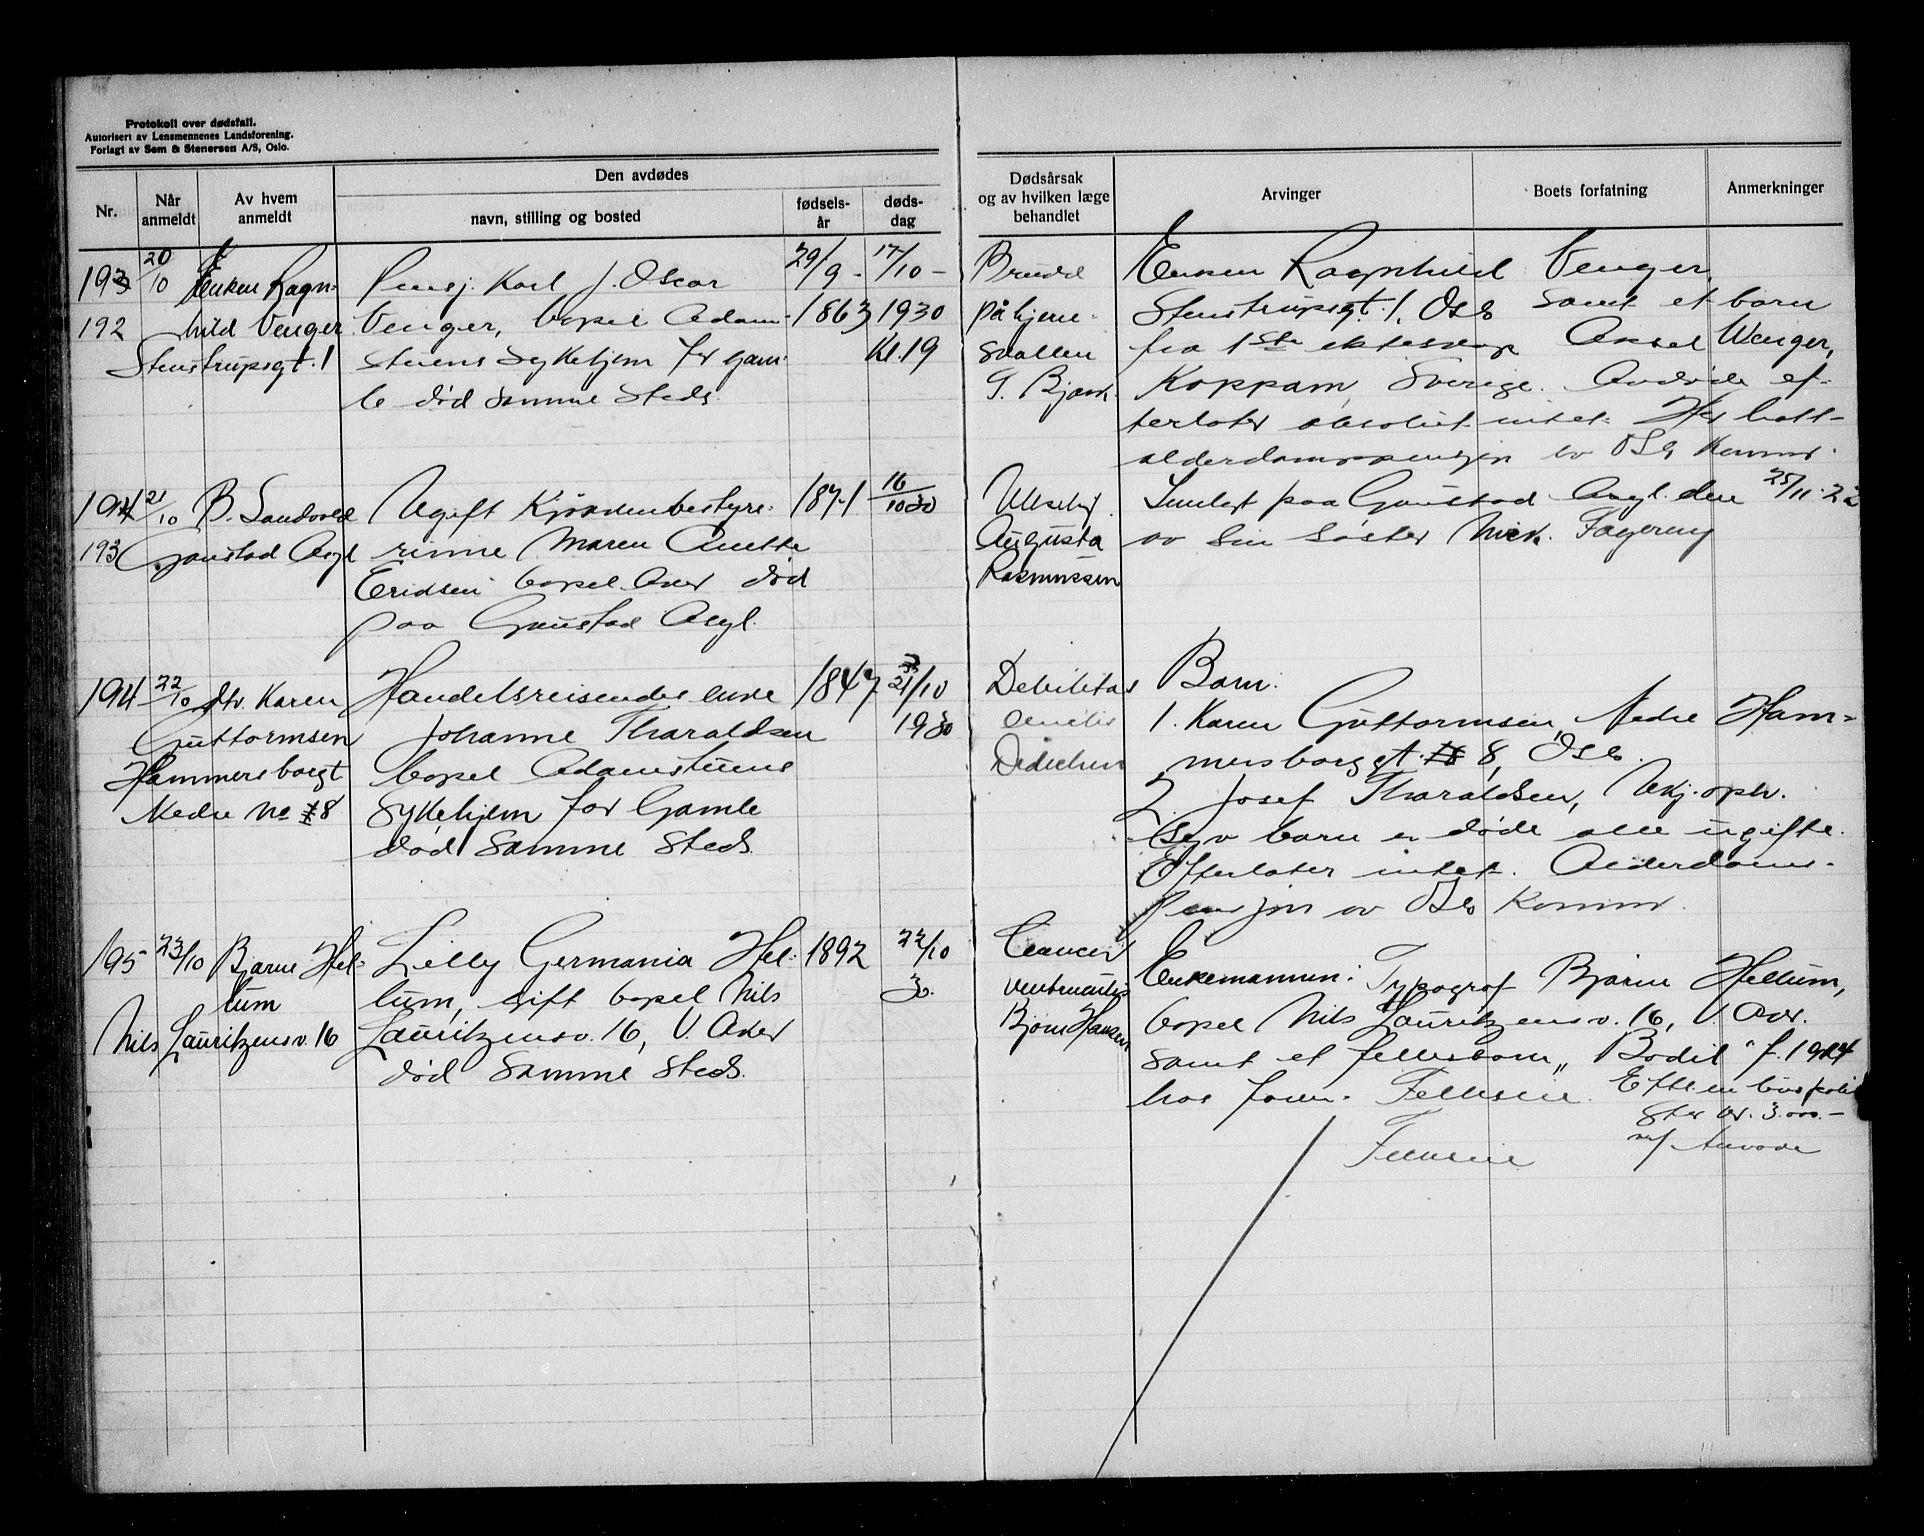 Protokoll over dødsfall.
Autorisert av Lensmennenes Landsforening.
Forlagt av Sem & Stenersen A/S, Oslo.
Nr.
Når anmeldt
Av hvem anmeldt
Den avdødes
navn, stilling og bosted
fødsels-år
døds-dag
Dødsårsak og av hvilken læge behandlet
Arvinger
Boets forfatning
Anmerkninger
193
192
20/10
Enken Ragn-
hild Venger
Stenstrupsgt. 1
Pensj. Karl J. Oscar
Venger, bopel Adam-
stuens Sykehjem for gam-
le død samme Steds.
29/9 -
1863
17/10 -
1930
Kl. 19
Brudd
på hjerne-
skallen
G. Bjark.
Enken Ragnhild Venger,
Stenstrupsgt. 1, Oslo samt et barn
fra 1ste ekteskap Aksel Wenger,
Koppam, Sverige. Avdøde ef-
terlater absolut intet. Har hatt
alderdomspensjon av Oslo Komm.
194
193
21/10
B. Sandvold
Gaustad Asyl
Ugift Kjøkkenbestyre-
rinne Maren Anette
Eridsen bopel Aker død
paa Gaustad Asyl.
1871
16/10 30
Augusta
Rasmussen
Innlagt paa Gaustad Asyl den 25/11-22
av sin søster Mrk. Fagereng
194
22/10
Karen
Guttormsen
Hammersborgt
Nedre No 8
Handelsreisendes enke
Johanne Tharaldsen
bopel Adamstuens
Sykehjem for Gamle
død samme Steds.
1847
21/10
1930
Debilitas
senilis
Didrichsen
Barn:
1. Karen Guttormsen, Nedre Ham-
mersborggt. 8, Oslo.
2. Josef Tharaldsen, Ukj. oph.
Syv barn er døde alle ugifte.
Efterlater intet. Alderdoms-
pensjon av Oslo Komm.
195
23/10
Bjarne Hel-
lum
Nils Lauritzensv. 16
Lilly Germania Hel-
lum, gift bopel Nils
Lauritzensv. 16, V. Aker
død samme Steds.
1892
22/10
30.
Cancer
ventriculis
Bjørn Hansen
Enkemannen: Typograf Bjarne Hellum,
bopel Nils Lauritzensv. 16, V. Aker.
samt et fellesbarn "Bodil" f. 1914
hos faren. Felleseie. Eftl. en livspolise
stor kr. 3.000.-
Felleseie